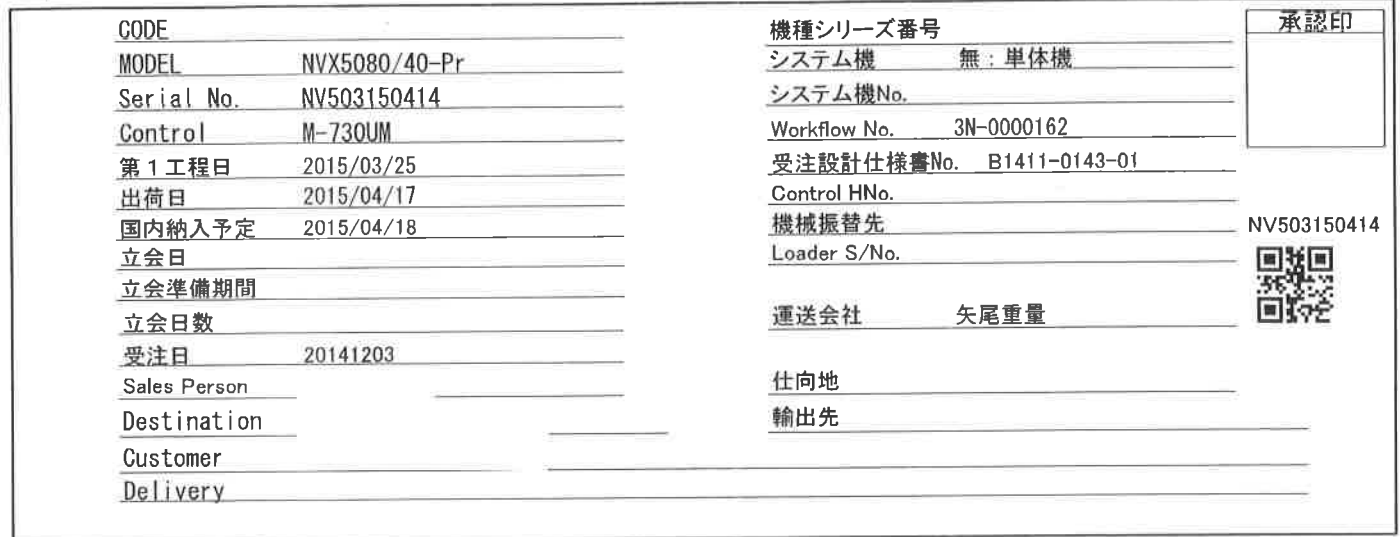 CODE
MODEL NVX5080/40-Pr
Serial No. NV503150414
Control M-730UM
第1工程日 2015/03/25
出荷日 2015/04/17
国内納入予定 2015/04/18
立会日
立会準備期間
立会日数
受注日 20141203
Sales Person
Destination
Customer
Delivery
機種シリーズ番号
システム機 無:単体機
システム機No.
Workflow No. 3N-0000162
受注設計仕様書No. B1411-0143-01
Control HNo.
機械振替先
Loader S/No.
運送会社 矢尾重量
仕向地
輸出先
承認印
NV503150414